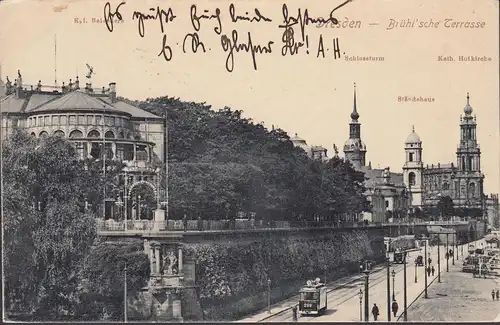 Kgl. Belvedere
Dresden — Brühl'sche Terrasse
Es grüßt Euch beide bestens
A. H.
Schlossturm
Kath. Hofkirche
Ständehaus